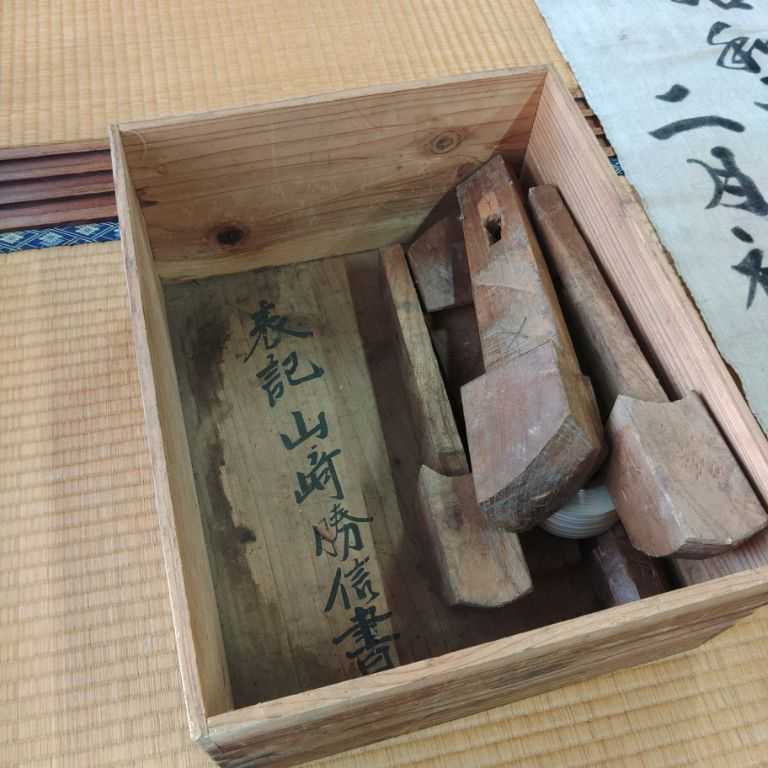 二月初
表記 山﨑勝信書